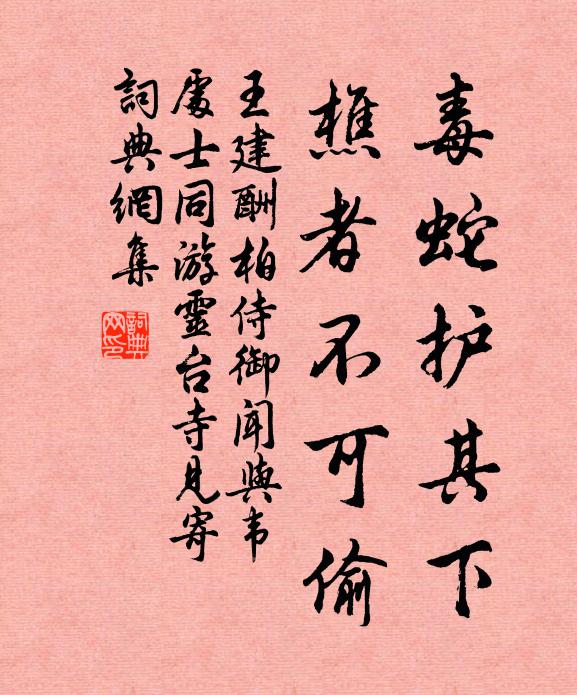 毒蛇护其下
樵者不可偷
王建酬柏侍御闻與韦
處士同游靈台寺見寄
詞典網集
詞典網印